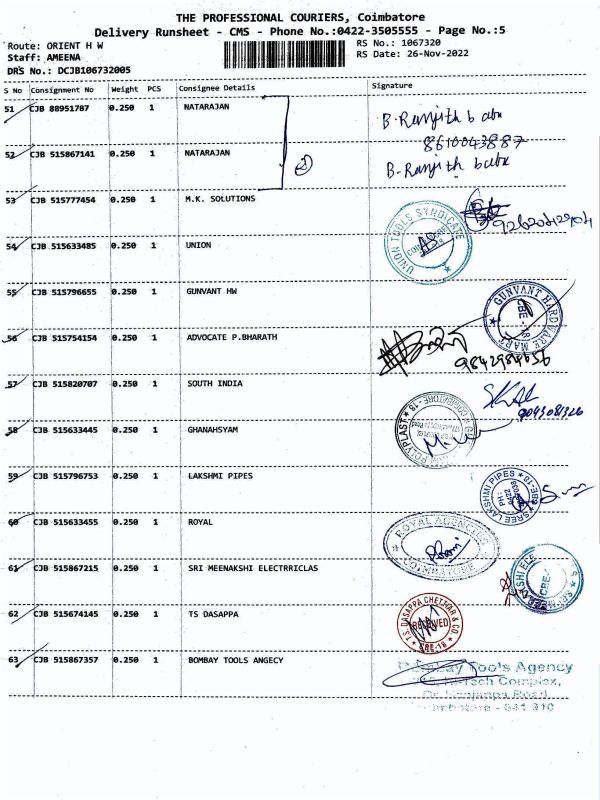 THE PROFESSIONAL COURIERS, Coimbatore
Delivery Runsheet - CMS - Phone No.:0422-3505555 - Page No.:5
Route: ORIENT H W
RS No.: 1067320
Staff: AMEENA
RS Date: 26-Nov-2022
DRS No.: DCJB106732005
S No Consignment No Weight PCS Consignee Details Signature
51 CJB 88951787 0.250 1 NATARAJAN
B. Ranjith babu
8610043887
52 CJB 515867141 0.250 1 NATARAJAN
2
B. Ranjith babu
53 CJB 515777454 0.250 1 M.K. SOLUTIONS
54 CJB 515633485 0.250 1 UNION
UNION TOOLS SYNDICATE
55 CJB 515796655 0.250 1 GUNVANT HW
GUNVANT HARDWARE MART
CBE-18
56 CJB 515754154 0.250 1 ADVOCATE P.BHARATH
57 CJB 515820707 0.250 1 SOUTH INDIA
58 CJB 515633445 0.250 1 GHANAHSYAM
POLYPLAST
COIMBATORE-18
59 CJB 515796753 0.250 1 LAKSHMI PIPES
SREE LAKSHMI PIPES
CBE-18
60 CJB 515633455 0.250 1 ROYAL
ROYAL AGENCIES
COIMBATORE
61 CJB 515867215 0.250 1 SRI MEENAKSHI ELECTRRICLAS
CBE-
62 CJB 515674145 0.250 1 TS DASAPPA
T.S. DASAPPA CHETTIAR & CO.
RECEIVED
CBE-18
63 CJB 515867357 0.250 1 BOMBAY TOOLS ANGECY
Bombay Tools Agency
Hi-Tech Complex,
Dr. Nanjappa Road,
Coimbatore - 641 018